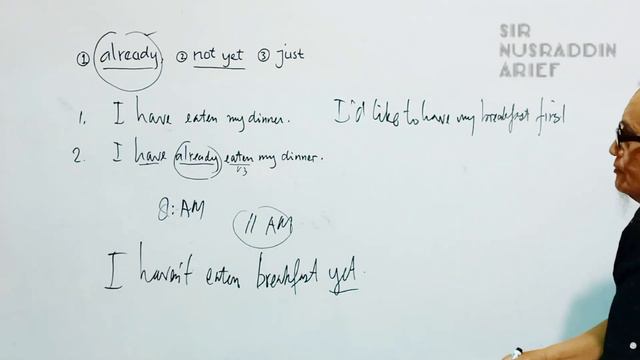 ① already ② not yet ③ just
SIR
NUSRADDIN
ARIEF
1. I have eaten my dinner. I'd like to have my breakfast first
2. I have already eaten my dinner.
V3
8: AM
11 AM
I haven't eaten breakfast yet.